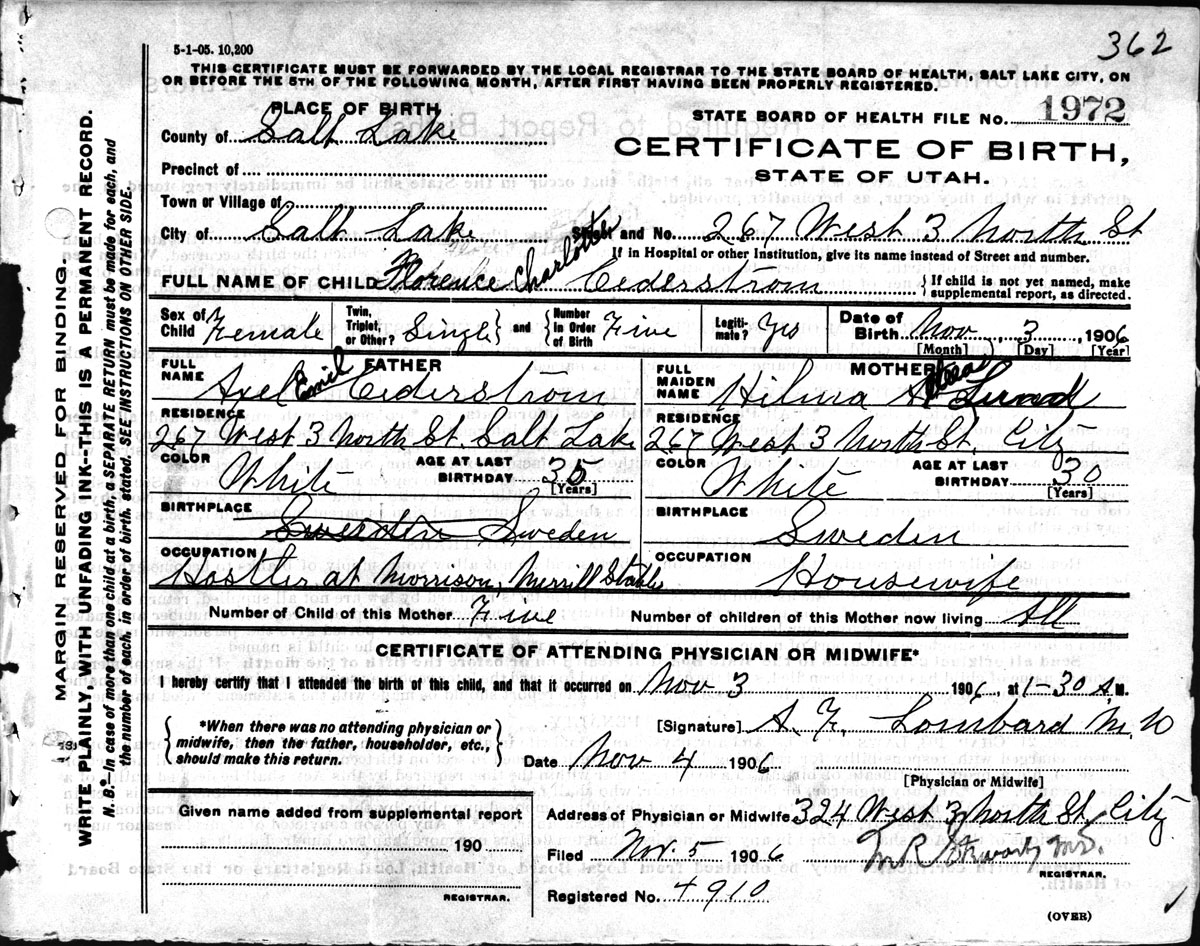 362
5-1-05. 10,200
THIS CERTIFICATE MUST BE FORWARDED BY THE LOCAL REGISTRAR TO THE STATE BOARD OF HEALTH, SALT LAKE CITY, ON
OR BEFORE THE 5TH OF THE FOLLOWING MONTH, AFTER FIRST HAVING BEEN PROPERLY REGISTERED.
PLACE OF BIRTH
STATE BOARD OF HEALTH FILE No. 1972
County of Salt Lake
CERTIFICATE OF BIRTH,
Precinct of
STATE OF UTAH.
Town or Village of
City of Salt Lake Street and No. 267 West 3 North St
If in Hospital or other Institution, give its name instead of Street and number.
FULL NAME OF CHILD Florence Charlotte Cederstrom { If child is not yet named, make
supplemental report, as directed.
Sex of Child Female Twin, Triplet, or Other? Single } and { Number in Order of Birth Five Legitimate? Yes Date of Birth Nov 3, 1906
[Month] [Day] [Year]
FATHER
FULL NAME Axel Emil Cederstrom
RESIDENCE
267 West 3 North St. Salt Lake
COLOR White AGE AT LAST BIRTHDAY 35
[Years]
BIRTHPLACE
Sweden Sweden
OCCUPATION
Hostler at Morrison, Merrill Stable
MOTHER
FULL MAIDEN NAME Hilma Lund
RESIDENCE
267 West 3 North St. City
COLOR White AGE AT LAST BIRTHDAY 30
[Years]
BIRTHPLACE
Sweden
OCCUPATION
Housewife
Number of Child of this Mother Five Number of children of this Mother now living All
CERTIFICATE OF ATTENDING PHYSICIAN OR MIDWIFE*
I hereby certify that I attended the birth of this child, and that it occurred on Nov 3 1906, at 1-30 A.M.
*When there was no attending physician or
midwife, then the father, householder, etc.,
should make this return.
[Signature] A. F. Lombard M.D
Date Nov 4 1906
[Physician or Midwife]
Given name added from supplemental report
190
REGISTRAR.
Address of Physician or Midwife 324 West 3 North St. City
Filed Nov. 5 1906 M.D.
REGISTRAR.
Registered No. 4910
(OVER)
MARGIN RESERVED FOR BINDING.
WRITE PLAINLY, WITH UNFADING INK--THIS IS A PERMANENT RECORD.
N. B.—In case of more than one child at a birth a SEPARATE RETURN must be made for each, and
the number of each, in order of birth, stated. SEE INSTRUCTIONS ON OTHER SIDE.